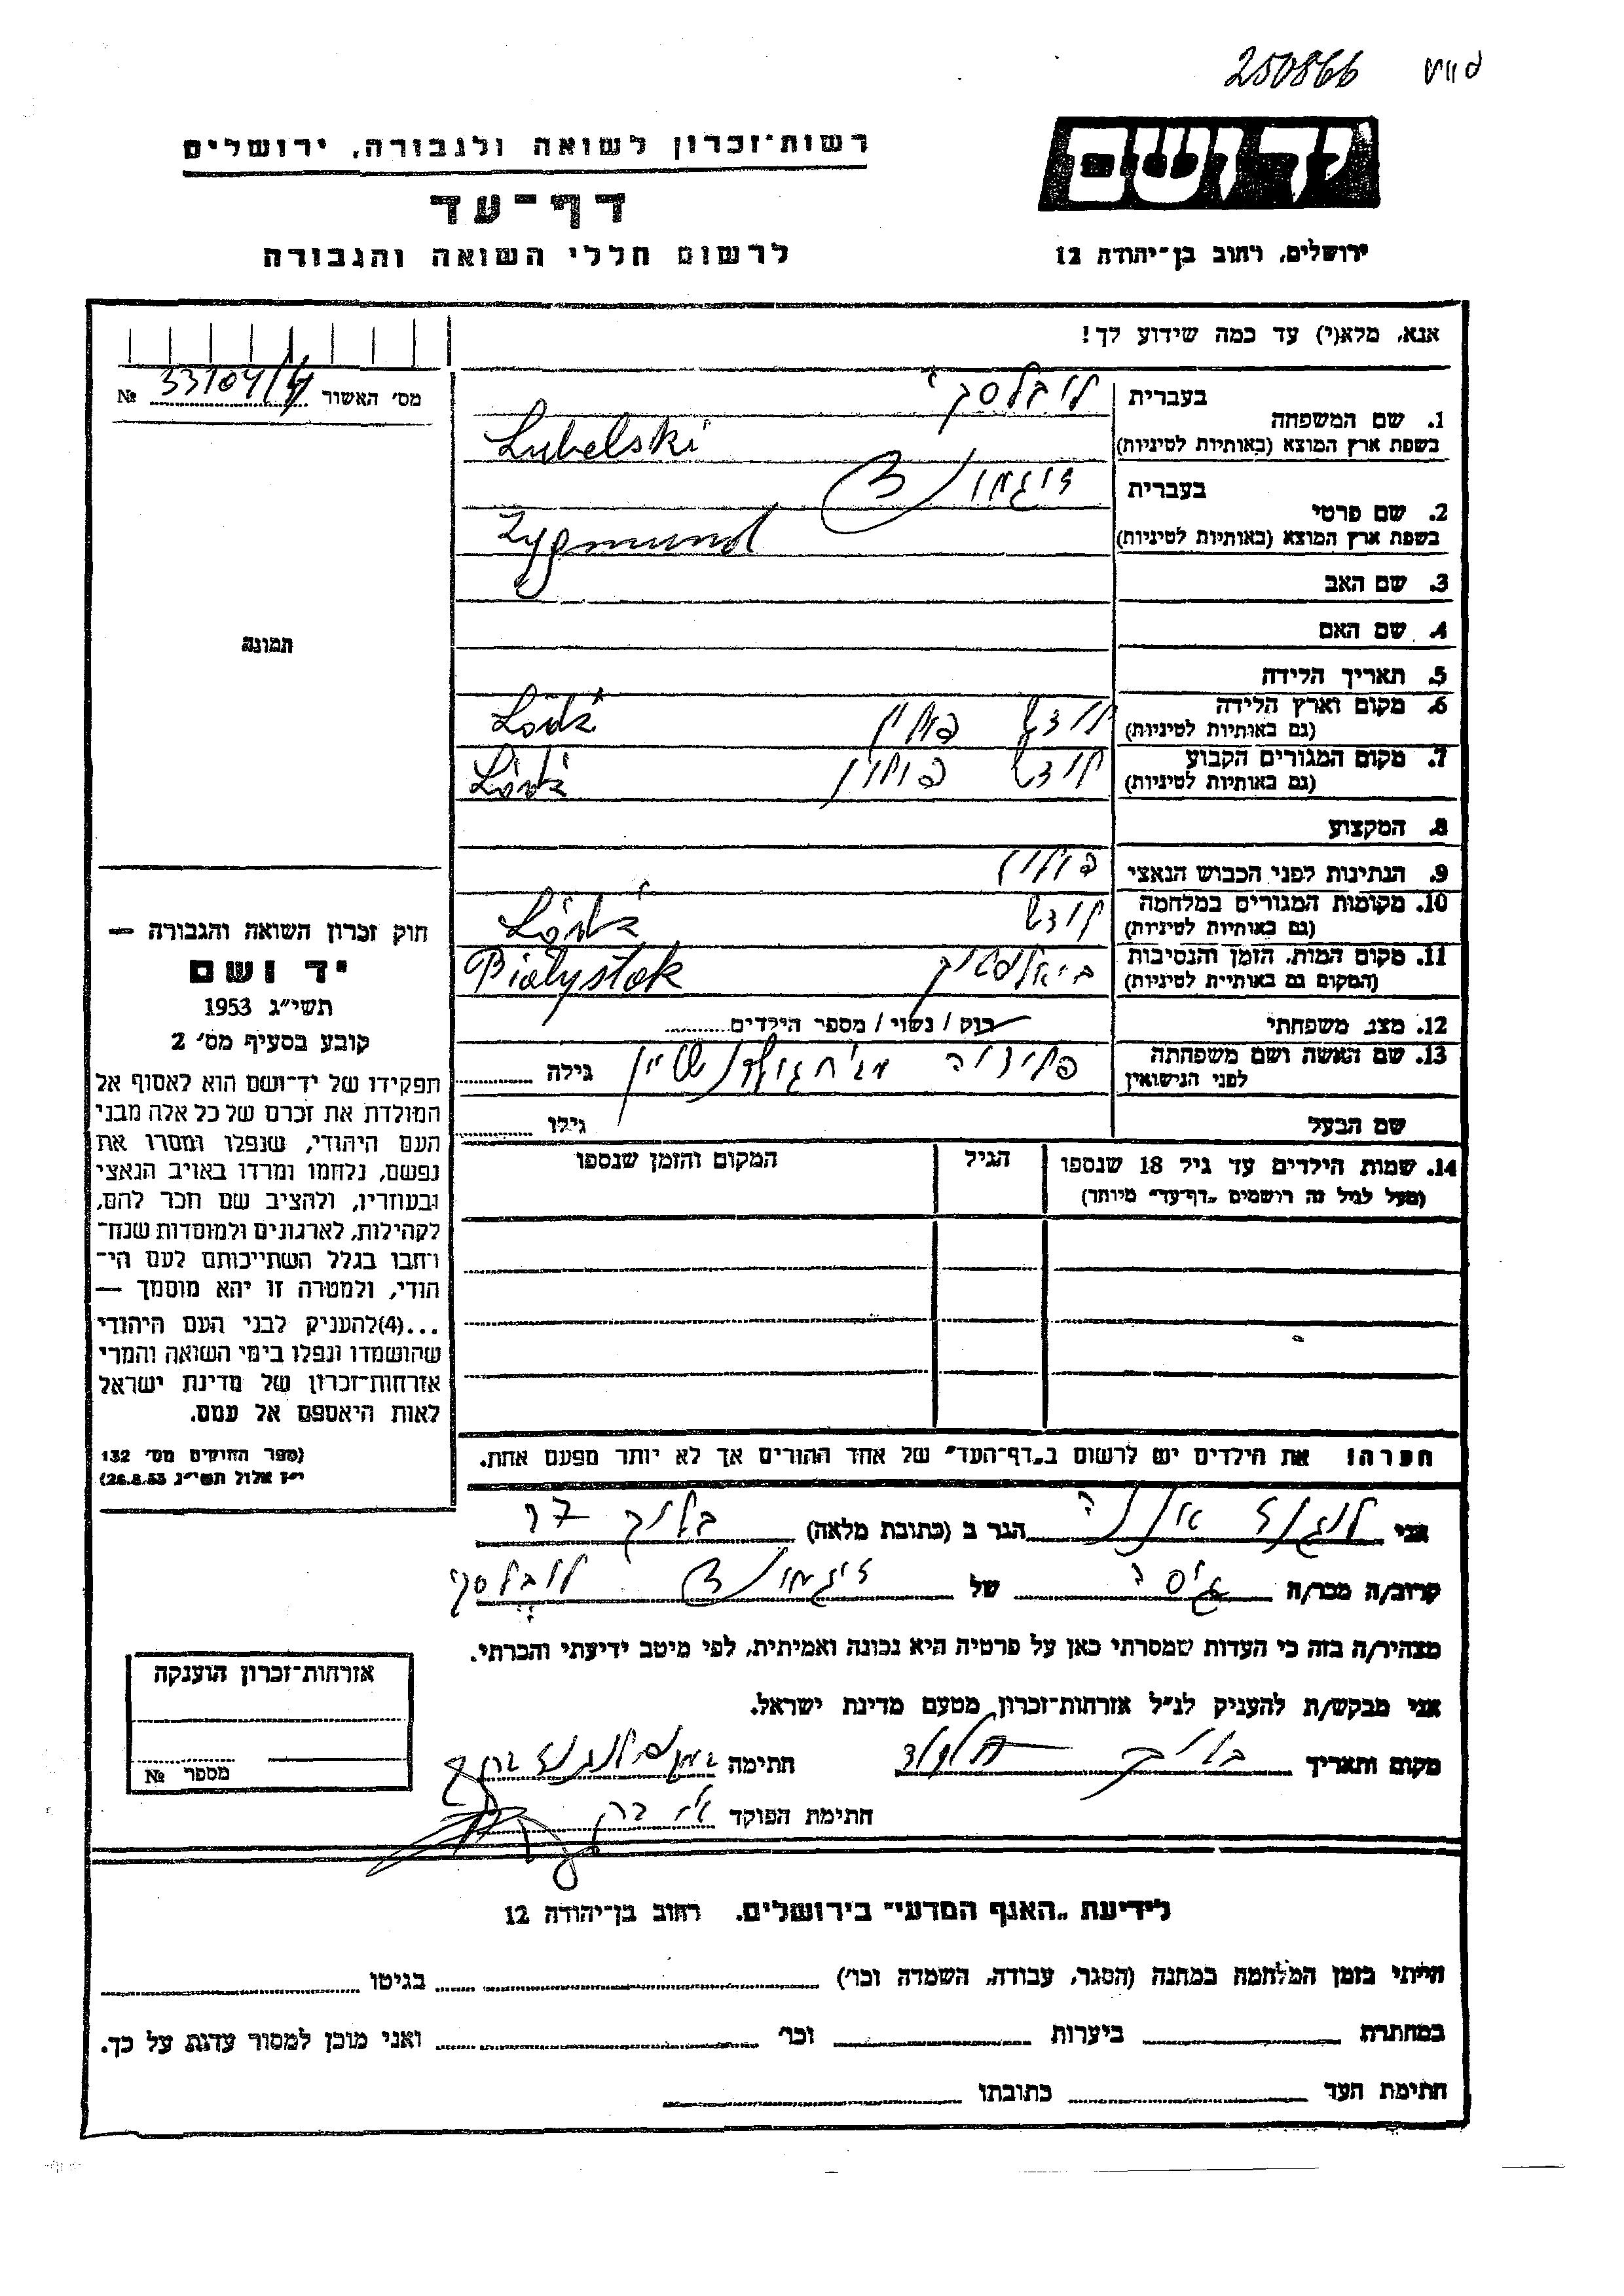 250866
יד ושם
רשות-זכרון לשואה ולגבורה, ירושלים
דף-עד
לרשום חללי השואה והגבורה
ירושלים, רחוב בן-יהודה 12
אנא, מלא(י) עד כמה שידוע לך!
מס׳ האשור № 33104/4
בעברית לובלסקי
1. שם המשפחה
בשפת ארץ המוצא (באותיות לטיניות) Lubelski
בעברית זיגמונד
2. שם פרטי
בשפת ארץ המוצא (באותיות לטיניות) Zygmund
3. שם האב
4. שם האם
5. תאריך הלידה
6. מקום וארץ הלידה לודז׳ פולין Łódź
(גם באותיות לטיניות)
7. מקום המגורים הקבוע לודז׳ פולין Łódź
(גם באותיות לטיניות)
8. המקצוע
9. הנתינות לפני הכבוש הנאצי פולין
10. מקומות המגורים במלחמה לודז׳ Łódź
(גם באותיות לטיניות)
11. מקום המות, הזמן והנסיבות ביאלסטוק Białystok
(המקום גם באותיות לטיניות)
12. מצב משפחתי רווק / נשוי / מספר הילדים
13. שם האשה ושם משפחתה גילה
לפני הנישואין
שם הבעל גילו
14. שמות הילדים עד גיל 18 שנספו הגיל המקום והזמן שנספו
(מעל לגיל זה רושמים „דף-עד״ מיוחד)
תמונה
חוק זכרון השואה והגבורה —
יד ושם
תשי״ג 1953
קובע בסעיף מס׳ 2
תפקידו של יד-ושם הוא לאסוף אל
המולדת את זכרם של כל אלה מבני
העם היהודי, שנפלו ומסרו את
נפשם, נלחמו ומרדו באויב הנאצי
ובעוזריו, ולהציב שם וזכר להם,
לקהילות, לארגונים ולמוסדות שנח-
רבו בגלל השתייכותם לעם הי-
הודי, ולמטרה זו יהא מוסמך —
...(4)להעניק לבני העם היהודי
שהושמדו ונפלו בימי השואה והמרי
אזרחות-זכרון של מדינת ישראל
לאות היאספם אל עמם.
(ספר החוקים מס׳ 132
י״ז אלול תשי״ג, 26.8.53)
הערה: את הילדים יש לרשום ב„דף-העד״ של אחד ההורים אך לא יותר מפעם אחת.
אני הגר ב (כתובת מלאה)
קרוב/ה מכר/ה גיסה של זיגמונד לובלסקי
מצהיר/ה בזה כי העדות שמסרתי כאן על פרטיה היא נכונה ואמיתית, לפי מיטב ידיעתי והכרתי.
אני מבקש/ת להעניק לנ״ל אזרחות-זכרון מטעם מדינת ישראל.
מקום ותאריך חתימה
חתימת הפוקד
אזרחות-זכרון הוענקה
מספר №
לידיעת „האגף המדעי״ בירושלים. רחוב בן-יהודה 12
הייתי בזמן המלחמה במחנה (הסגר, עבודה, השמדה וכו׳) בגיטו
במחתרת ביערות וכו׳ ואני מוכן למסור עדות על כך.
חתימת העד כתובתו